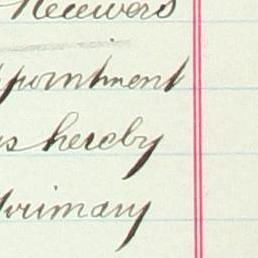 Receivers
ppointment
is hereby
Primary